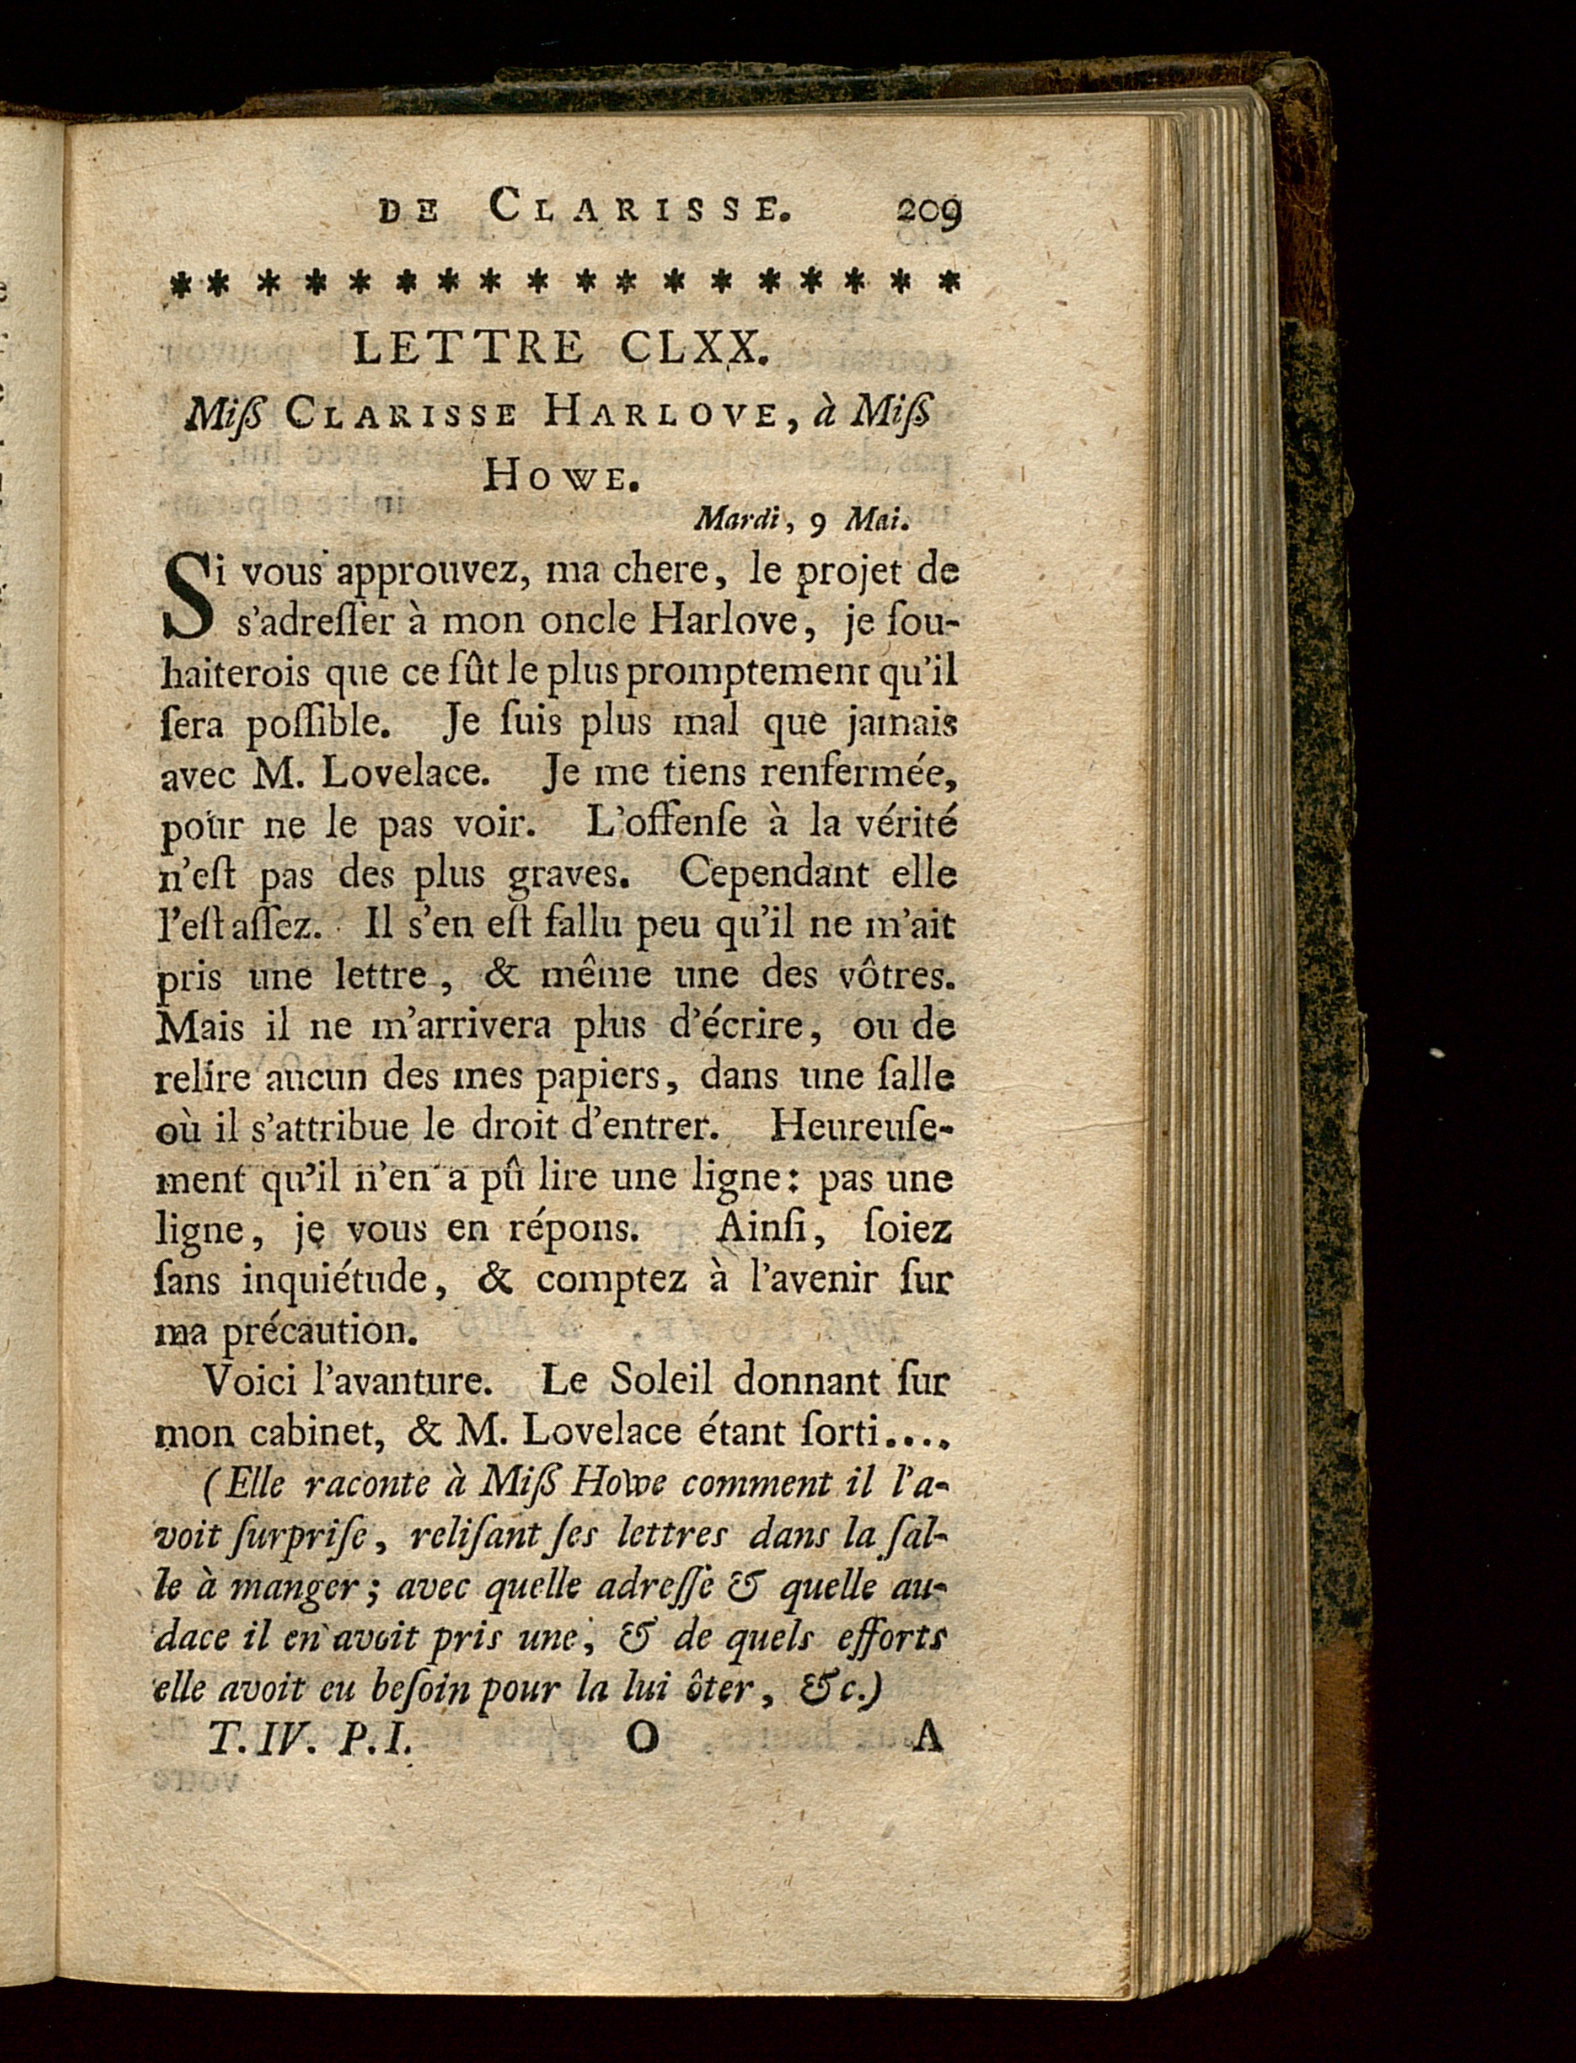 DE CLARISSE. 209
* * * * * * * * * * * * * * * * * *
LETTRE CLXX.
Miſs CLARISSE HARLOVE, à Miſs
HOWE.
Mardi, 9 Mai.
Si vous approuvez, ma chere, le projet de
s'adreſſer à mon oncle Harlove, je ſou-
haiterois que ce fût le plus promptement qu'il
ſera poſſible. Je ſuis plus mal que jamais
avec M. Lovelace. Je me tiens renfermée,
pour ne le pas voir. L'offenſe à la vérité
n'eſt pas des plus graves. Cependant elle
l'eſt aſſez. Il s'en eſt fallu peu qu'il ne m'ait
pris une lettre, & même une des vôtres.
Mais il ne m'arrivera plus d'écrire, ou de
relire aucun des mes papiers, dans une ſalle
où il s'attribue le droit d'entrer. Heureuſe-
ment qu'il n'en a pû lire une ligne: pas une
ligne, je vous en répons. Ainſi, ſoiez
ſans inquiétude, & comptez à l'avenir ſur
ma précaution.
Voici l'avanture. Le Soleil donnant ſur
mon cabinet, & M. Lovelace étant ſorti....
(Elle raconte à Miſs Howe comment il l'a-
voit ſurpriſe, reliſant ſes lettres dans la ſal-
le à manger; avec quelle adreſſe & quelle au-
dace il en avoit pris une, & de quels efforts
elle avoit eu beſoin pour la lui ôter, &c.)
T. IV. P. I. O A